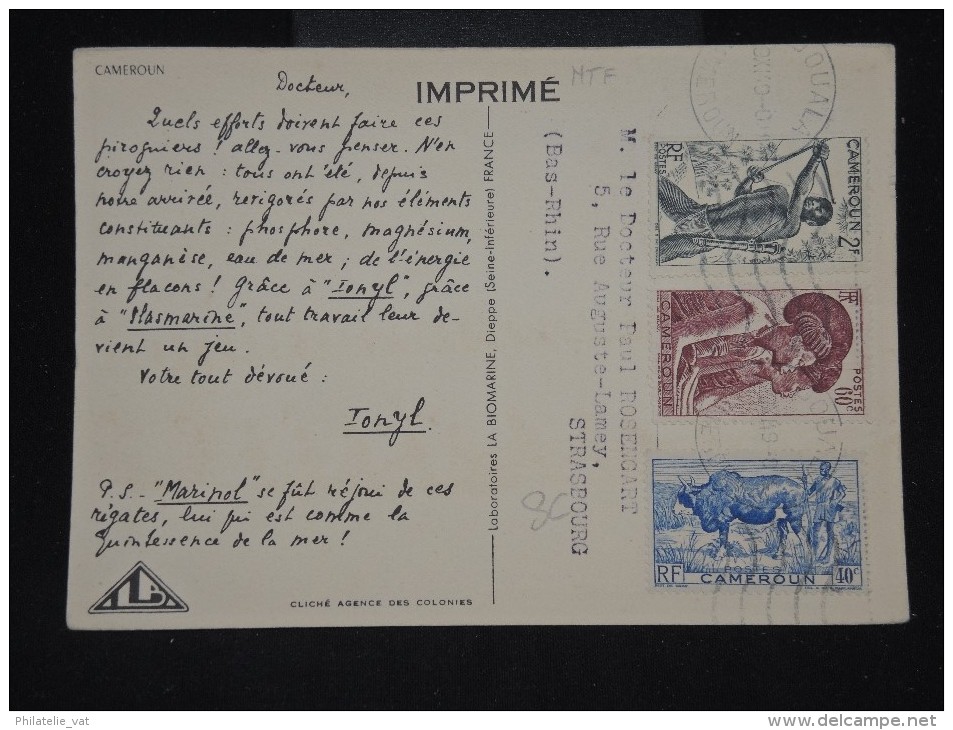 CAMEROUN
Docteur,
IMPRIMÉ
MTF
Quels efforts doivent faire ces
piroguiers ! allez-vous penser. N'en
croyez rien : tous ont été, depuis
notre arrivée, revigorés par nos éléments
constituants : phosphore, magnésium,
manganèse, eau de mer ; de l'énergie
en flacons ! Grâce à "Ionyl", grâce
à "Plasmarine", tout travail leur de-
vient un jeu.
Votre tout dévoué :
Ionyl.
P.S.- "Marinol" se fût réjoui de ces
régates, lui qui est comme la
quintessence de la mer !
CLICHÉ AGENCE DES COLONIES
Laboratoires LA BIOMARINE, Dieppe (Seine-Inférieure) FRANCE
M. le Docteur Paul ROSENGART
5, Rue Auguste-Lamey,
STRASBOURG
(Bas-Rhin).
DOUALA
RF
POSTES
CAMEROUN 2F
RF
CAMEROUN
POSTES
60c
POSTES
RF CAMEROUN 40c
Philatelie_vat
www.delcampe.net